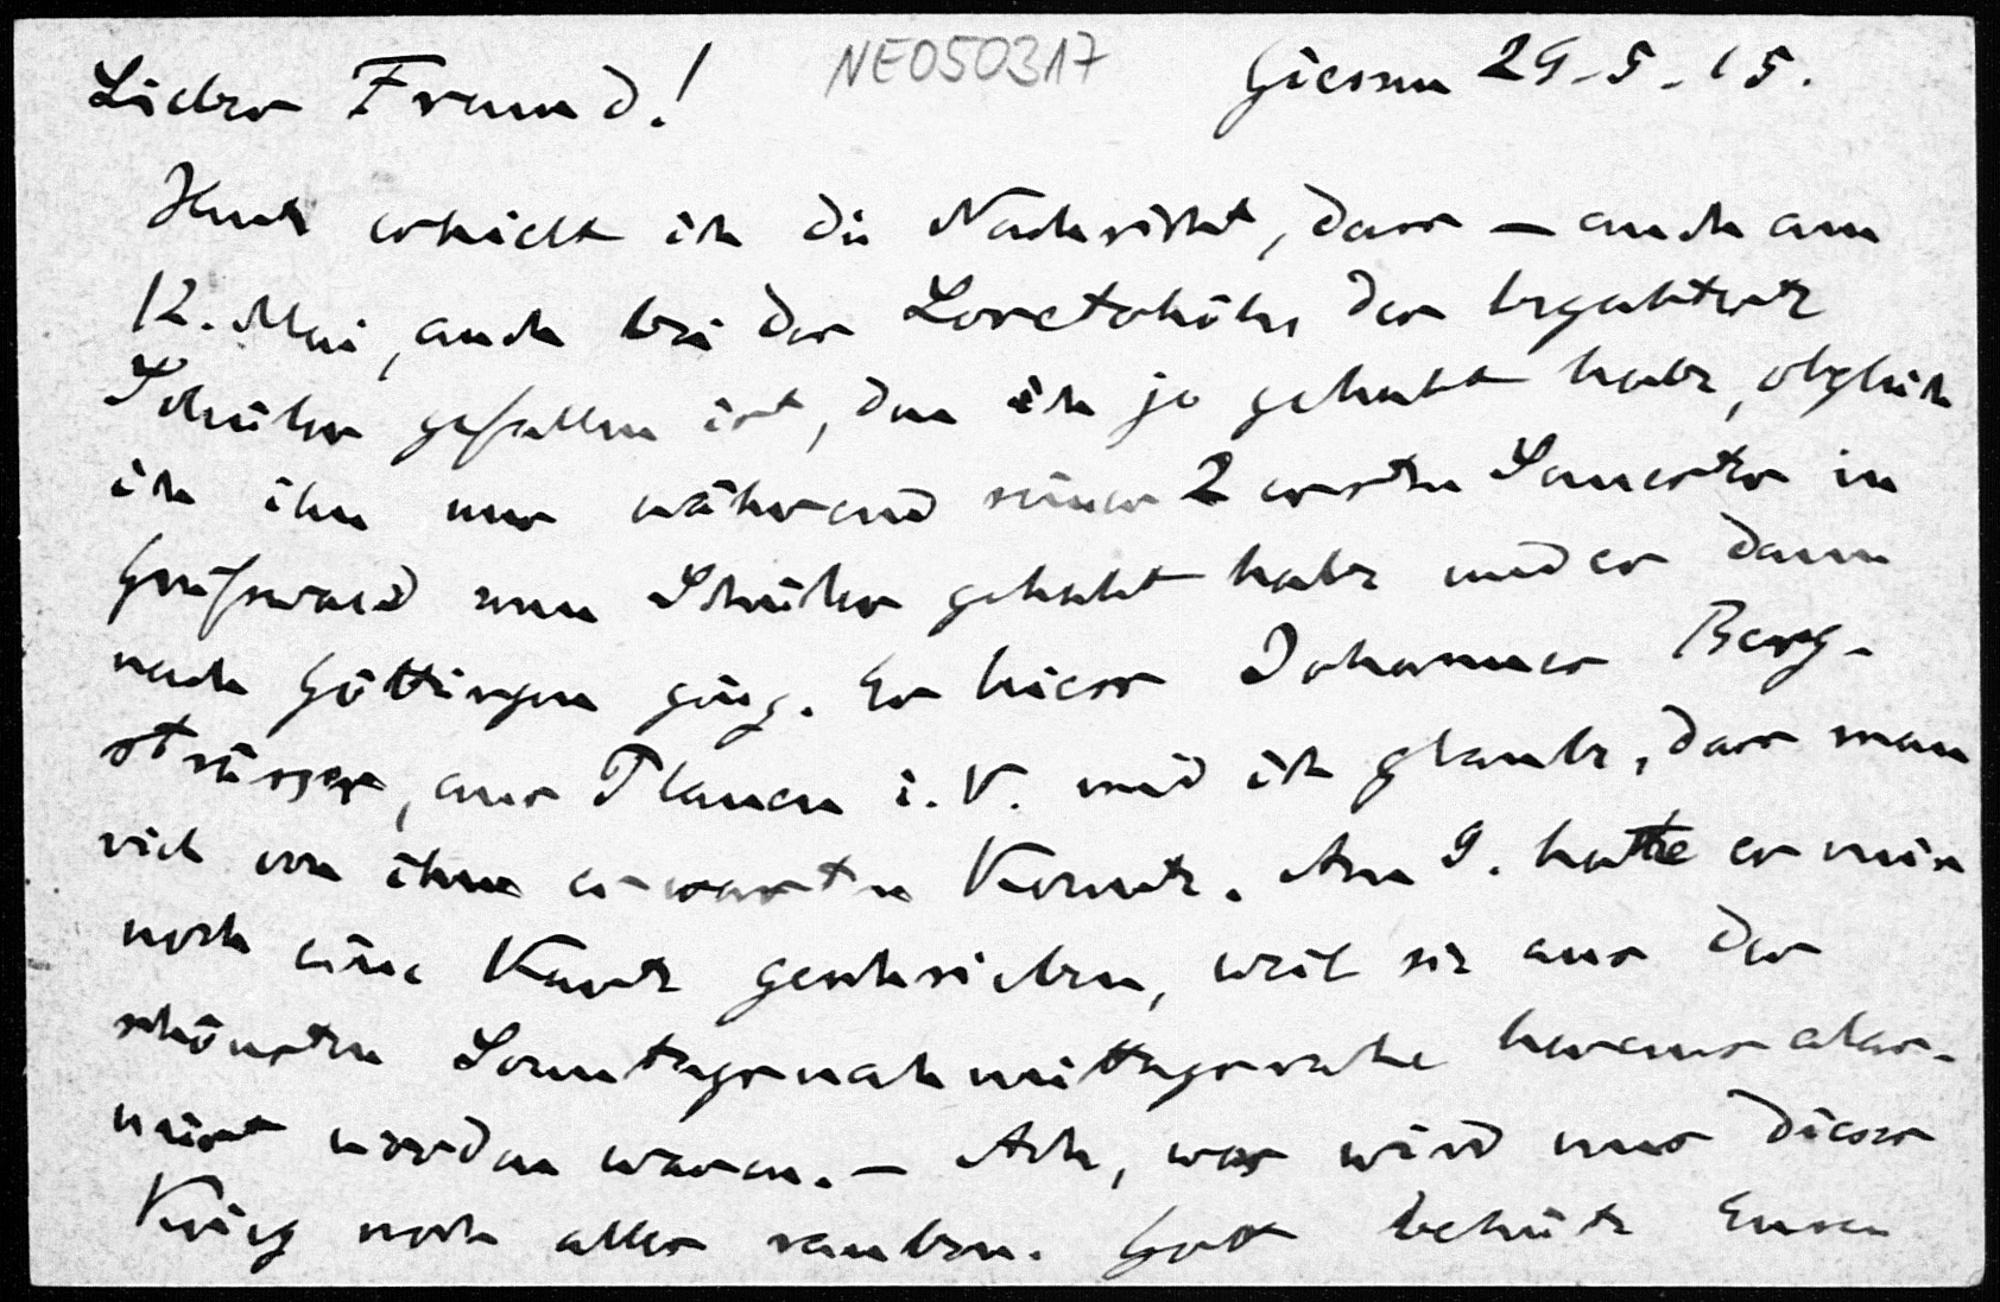 NE050317
Lieber Freund! Giessen 29-5-15.
Heute erhielt ich die Nachricht, dass – auch am
12. Mai, auch bei der Loretohöhe, der begabteste
Schüler gefallen ist, den ich je gehabt habe, obgleich
ich ihn nur während seiner 2 ersten Semester in
Greifswald zum Schüler gehabt habe und er dann
nach Göttingen ging. Er hiess Johannes Berg-
strässer, aus Plauen i. V. und ich glaube, dass man
viel von ihm erwarten konnte. Am 9. hatte er mir
noch eine Karte geschrieben, weil sie aus der
schönsten Sonntagsnachmittagsruhe heraus alar-
miert worden waren. – Ach, was wird uns dieser
Krieg noch alles rauben. Gott behüte Euren